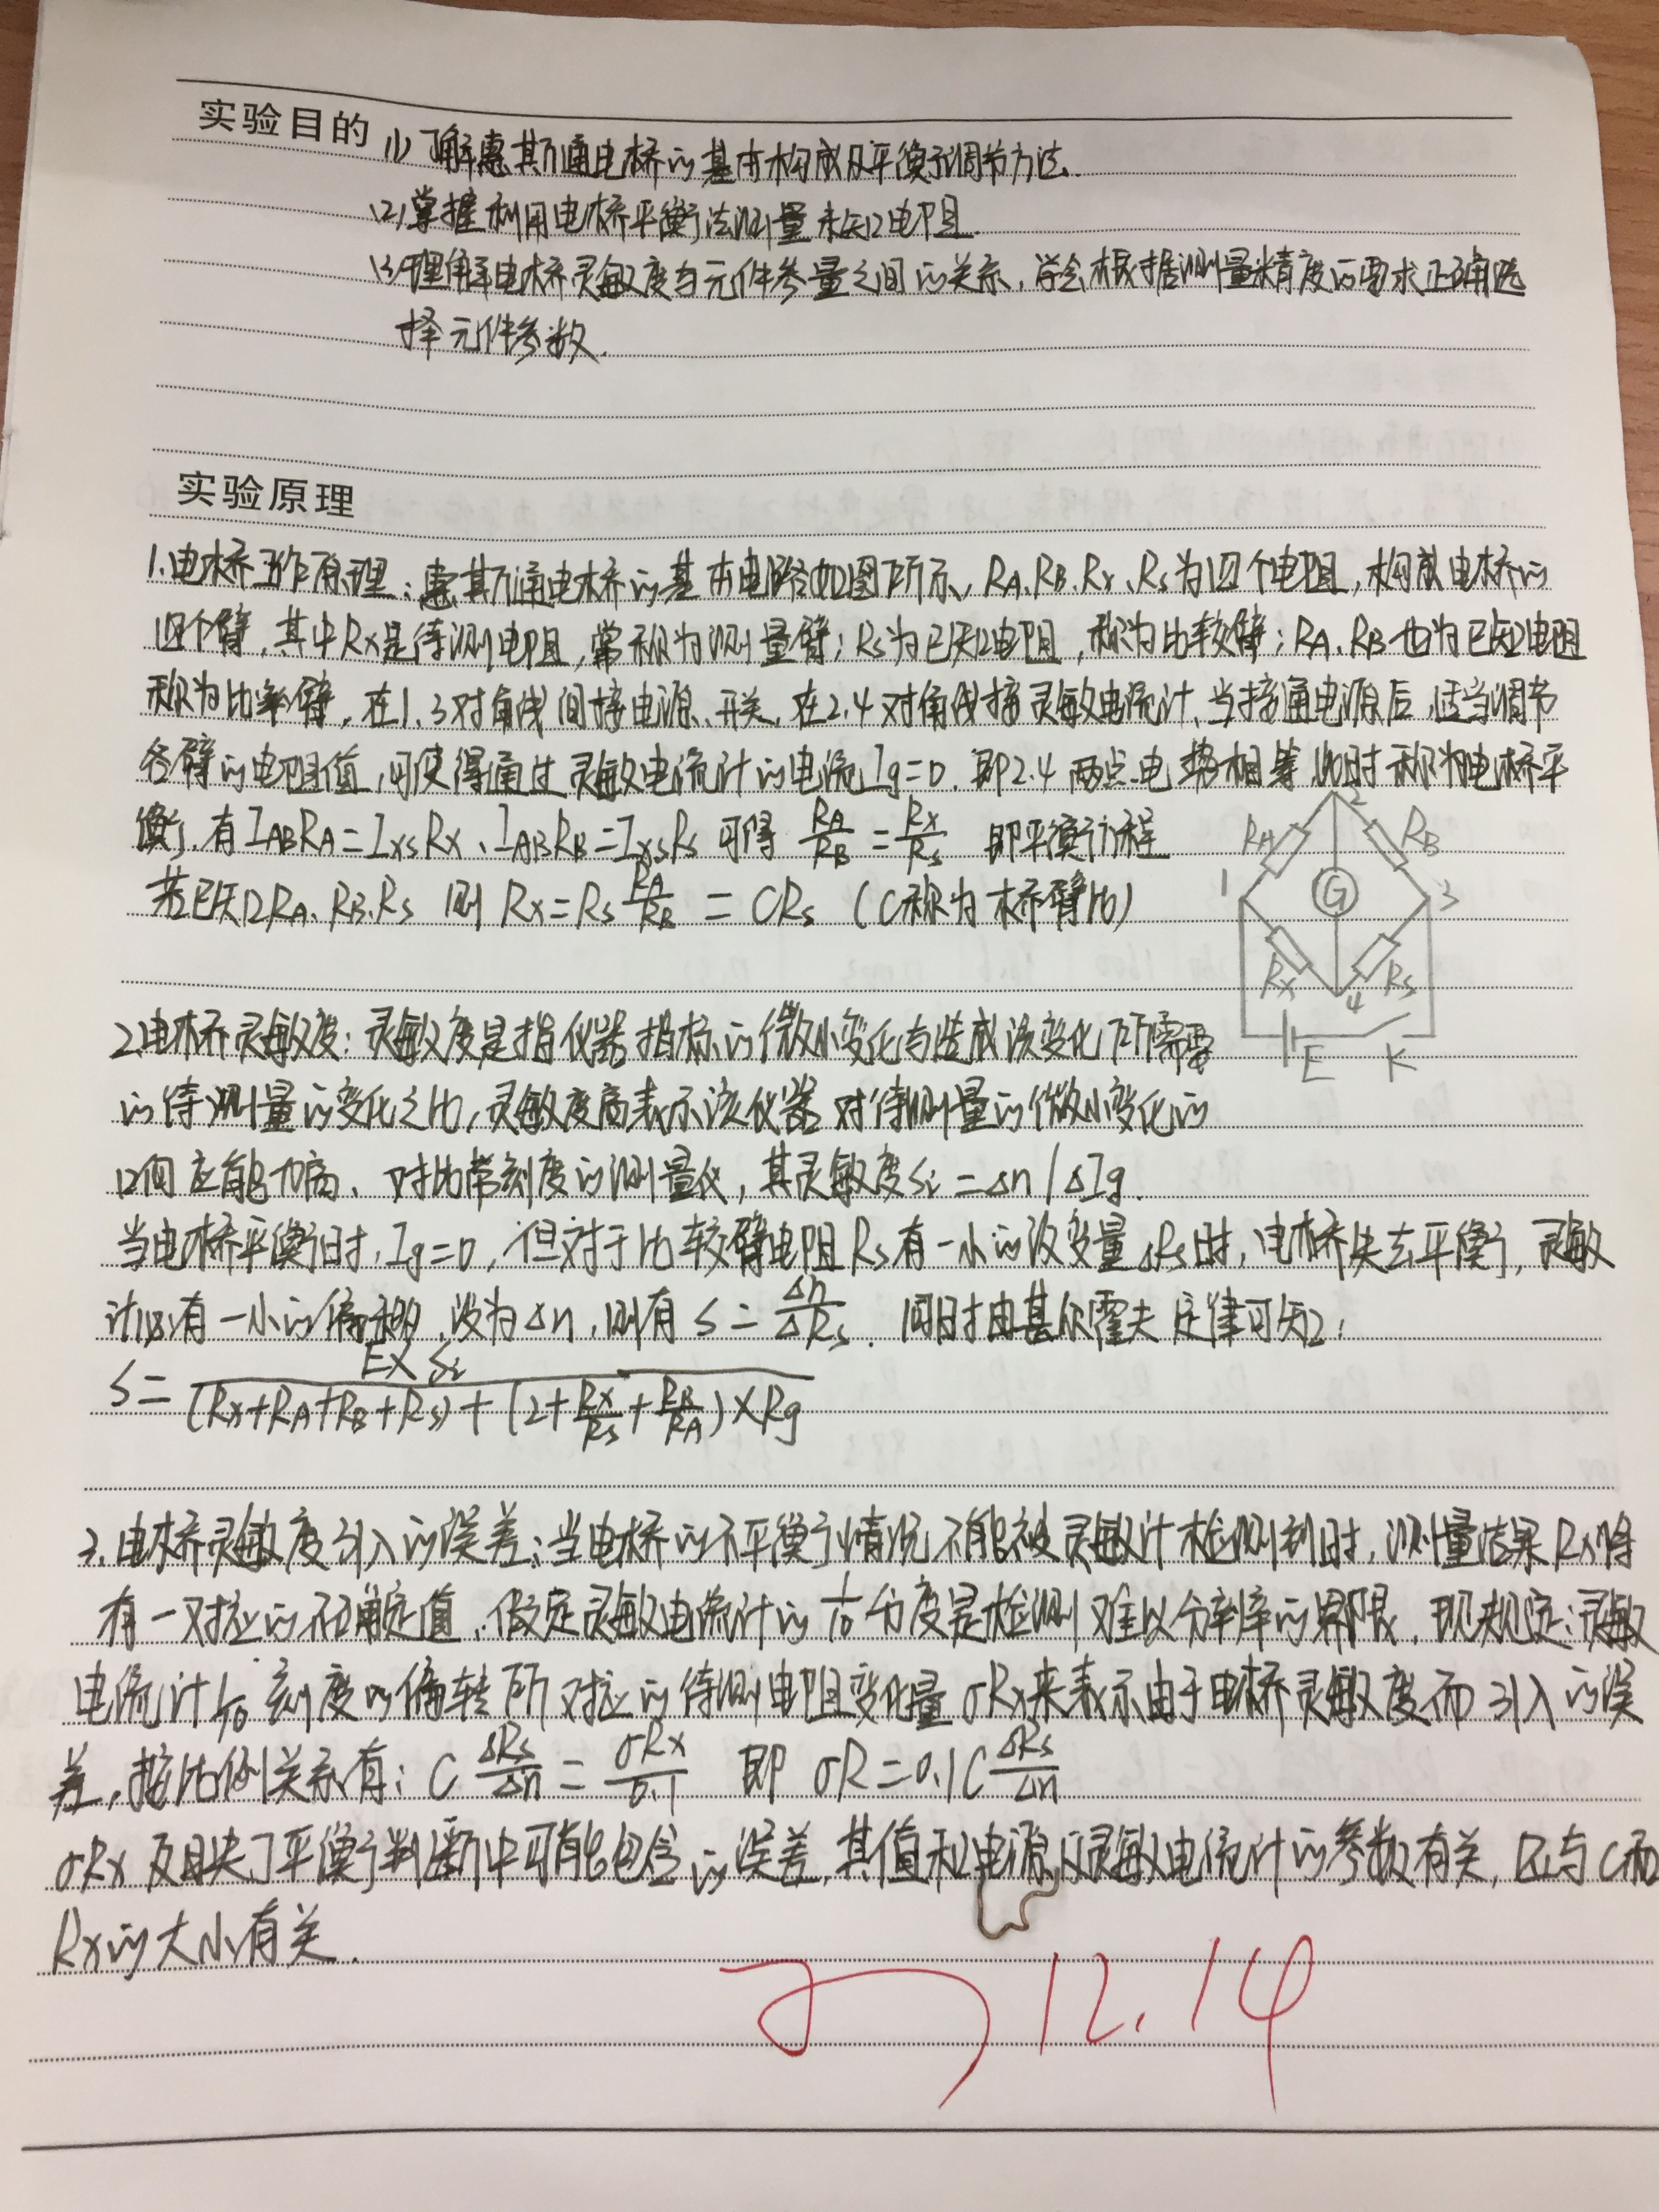 实验目的 (1) 了解惠斯通电桥的基本构成及平衡调节方法.
(2) 掌握利用电桥平衡法测量未知电阻.
(3) 理解电桥灵敏度与元件参量之间的关系, 学会根据测量精度的要求正确选
择元件参数.
实验原理
1.电桥工作原理: 惠斯通电桥的基本电路如图所示, RA.RB.Rx、Rs为四个电阻, 构成电桥的
四个臂, 其中Rx是待测电阻, 常称为测量臂; Rs为已知电阻, 称为比较臂; RA.RB也为已知电阻
称为比率臂, 在1.3对角线间接电源、开关, 在2.4对角线接灵敏电流计、当接通电源后, 适当调节
各臂的电阻值, 可使得通过灵敏电流计的电流Ig=0. 即2.4两点电势相等, 此时称为电桥平
衡, 有IABRA=IxsRx、IABRB=IxsRs 可得 RA/RB = Rx/Rs 即平衡方程
若已知RA、RB.Rs 则 Rx=Rs RA/RB = CRs (C称为桥臂比)
RA 2 RB
1 G 3
Rx 4 Rs
E K
2.电桥灵敏度: 灵敏度是指仪器指标的微小变化与造成该变化所需要
的待测量的变化之比, 灵敏度高表示该仪器对待测量的微小变化的
响应能力高、对比常刻度的测量仪, 其灵敏度Si=Δn/ΔIg.
当电桥平衡时, Ig=0, 但对于比较臂电阻Rs有一小的改变量ΔRs时, 电桥失去平衡, 灵敏
计将有一小的偏移, 设为Δn, 则有 S = Δn/ΔRs. 同时由基尔霍夫定律可知:
S = E×Si / (Rx+RA+RB+Rs)+(2+Rx/Rs+RB/RA)×Rg
3.电桥灵敏度引入的误差: 当电桥的不平衡情况不能被灵敏计检测到时, 测量结果Rx将
有一对应的不确定值、假定灵敏电流计的1/10分度是检测难以分辨率的界限, 现规定: 灵敏
电流计1/10刻度的偏转所对应的待测电阻变化量σRx来表示由于电桥灵敏度而引入的误
差, 按比例关系有: C ΔRs/Δn = σRx/0.1 即 σR=0.1C ΔRs/Δn
σRx反映了平衡判断中可能包含的误差, 其值和电源及灵敏电流计的参数有关, 且与C和
Rx的大小有关.
12.14